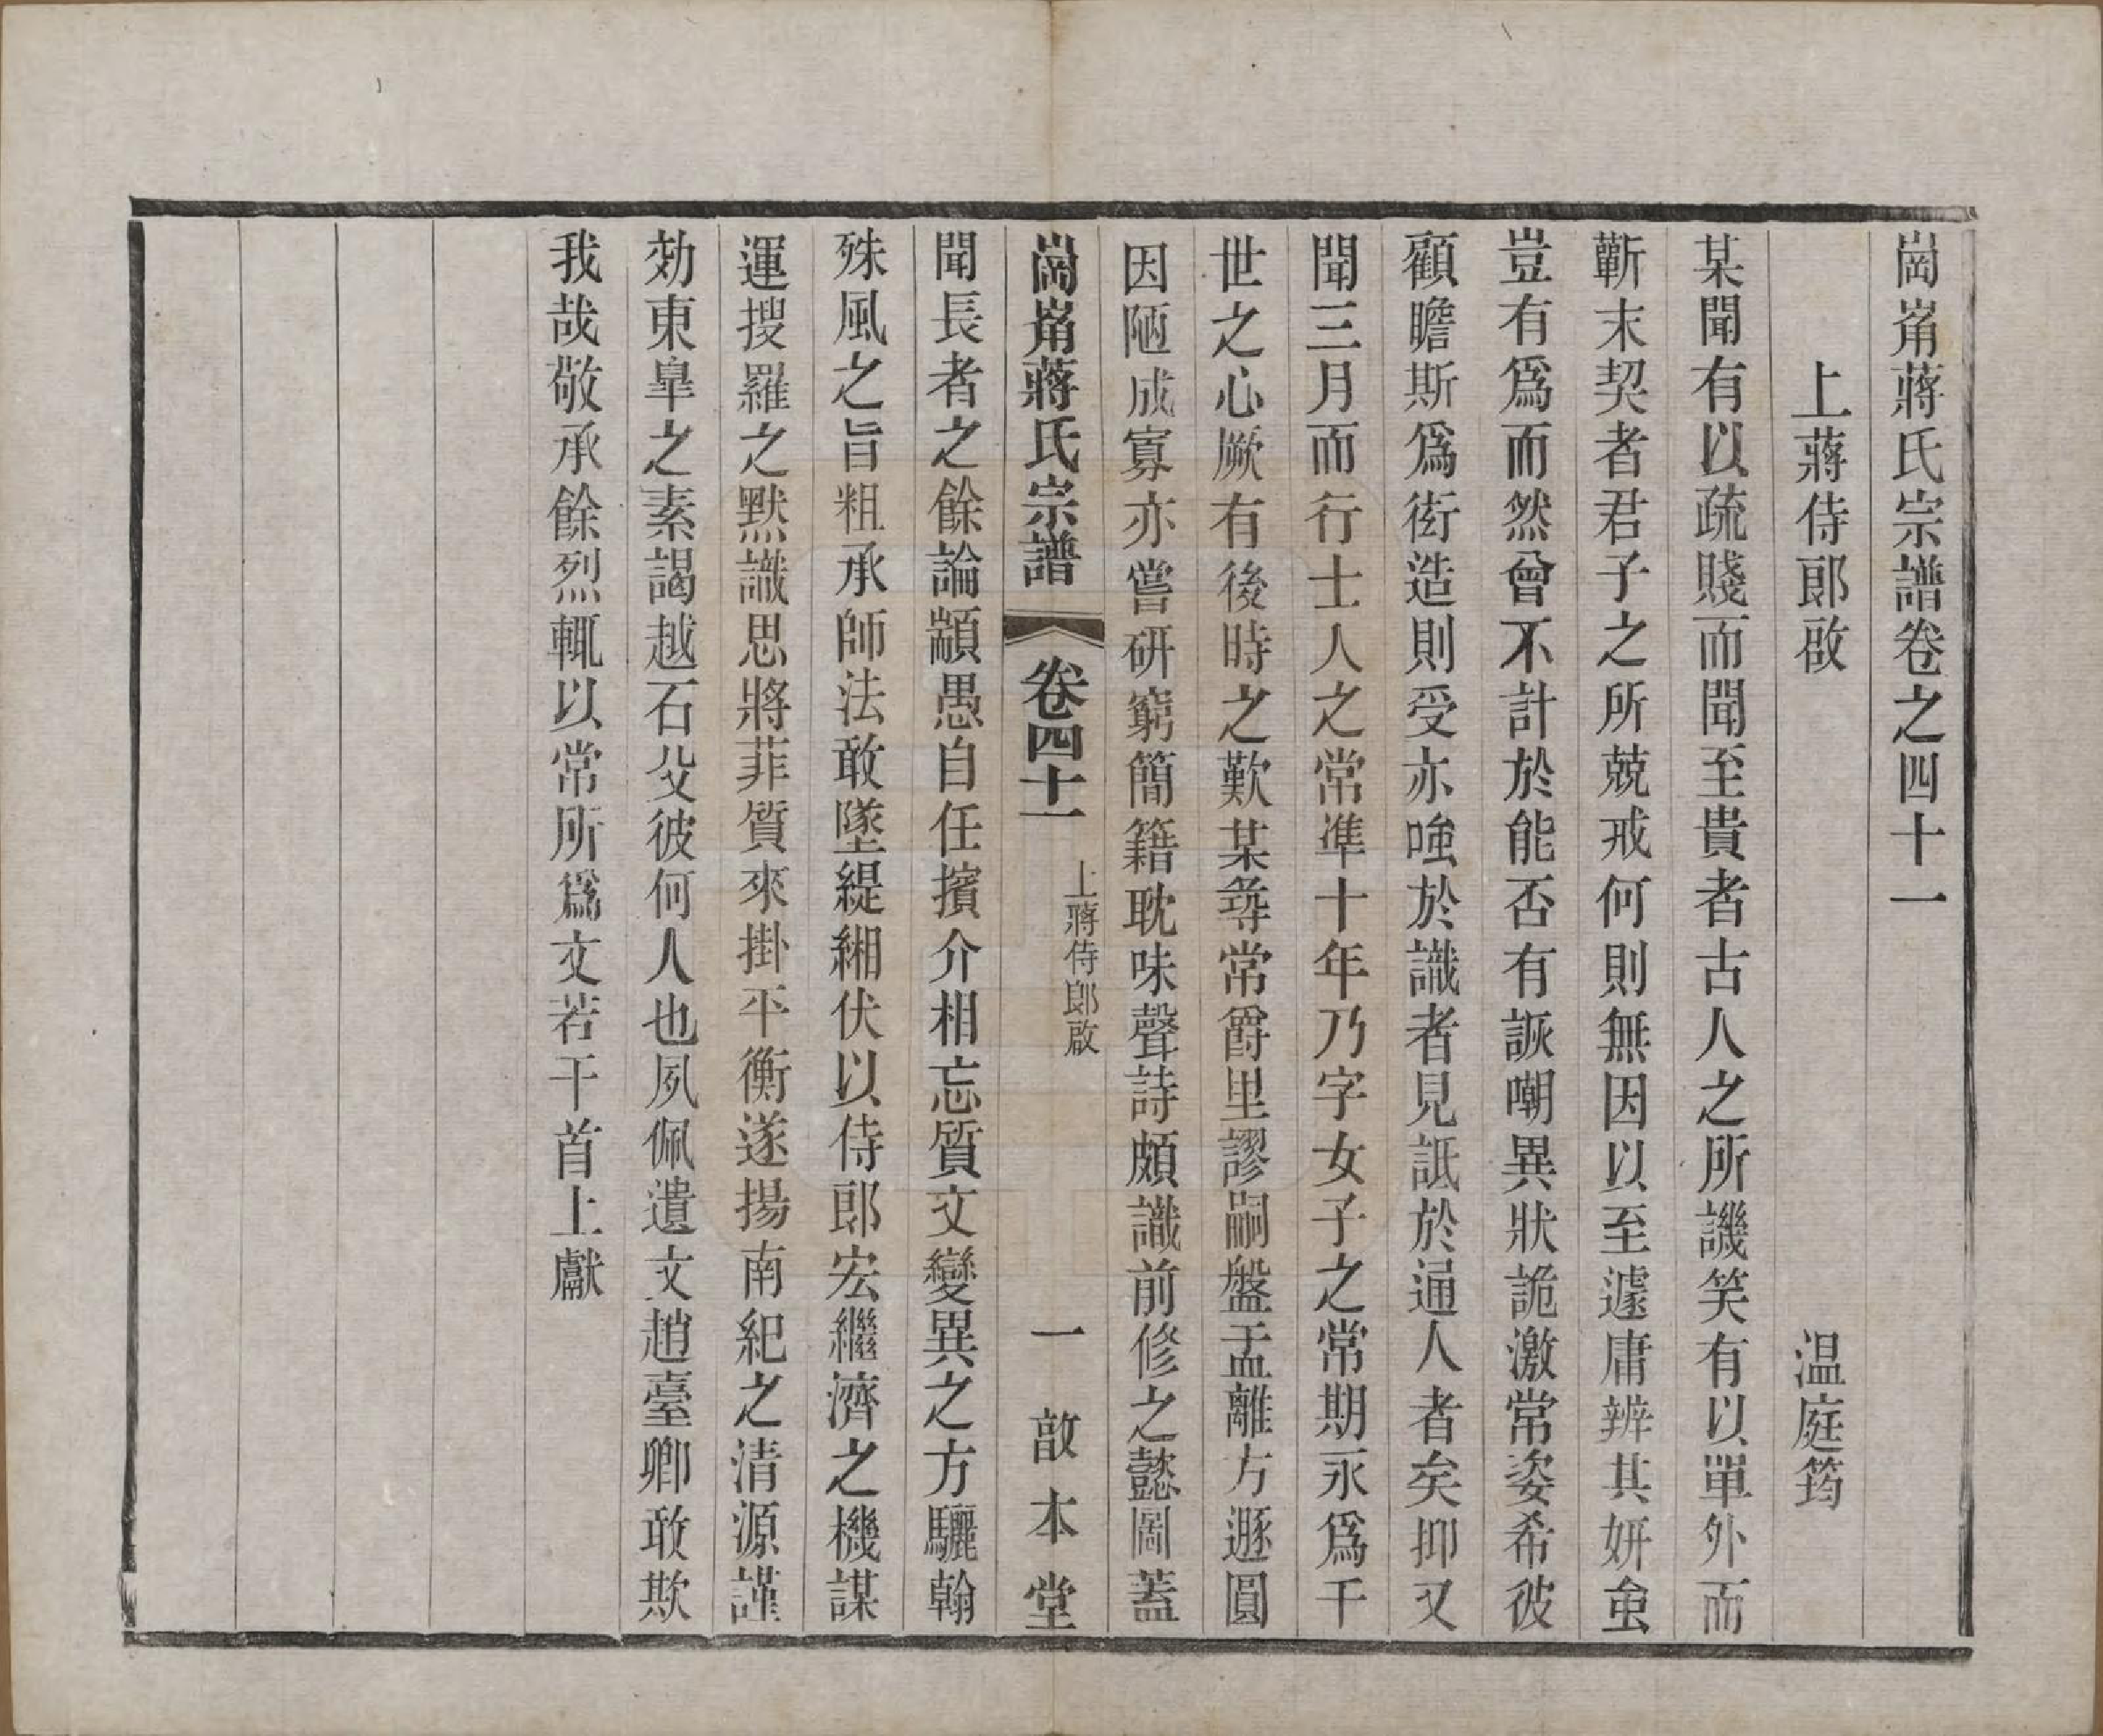 崗崙蔣氏宗譜卷之四十一
上蔣侍郎啟　温庭筠
某聞有以疏賤而聞至貴者古人之所譏笑有以單外而
蘄末契者君子之所兢戒何則無因以至遽庸辨其妍蚩
豈有爲而然曾不計於能否有詼嘲異狀詭激常姿希彼
顧瞻斯爲衒造則受亦嗤於識者見詆於通人者矣抑又
聞三月而行士人之常準十年乃字女子之常期永爲千
世之心厥有後時之歎某尋常爵里謬嗣盤盂離方遯圓
因陋成寡亦嘗硏窮簡籍耽味聲詩頗識前修之懿圖蓋
崗崙蔣氏宗譜　卷四十一　上蔣侍郎啟　一　敨本堂
聞長者之餘論顓愚自任擯介相忘質文變異之方驪翰
殊風之旨粗承師法敢墜緹緗伏以侍郎宏繼濟之機謀
運搜羅之默識思將菲質來掛平衡遂揚南紀之清源謹
効東臯之素謁越石父彼何人也夙佩遺文趙臺卿敢欺
我哉敬承餘烈輒以常所爲文若干首上獻